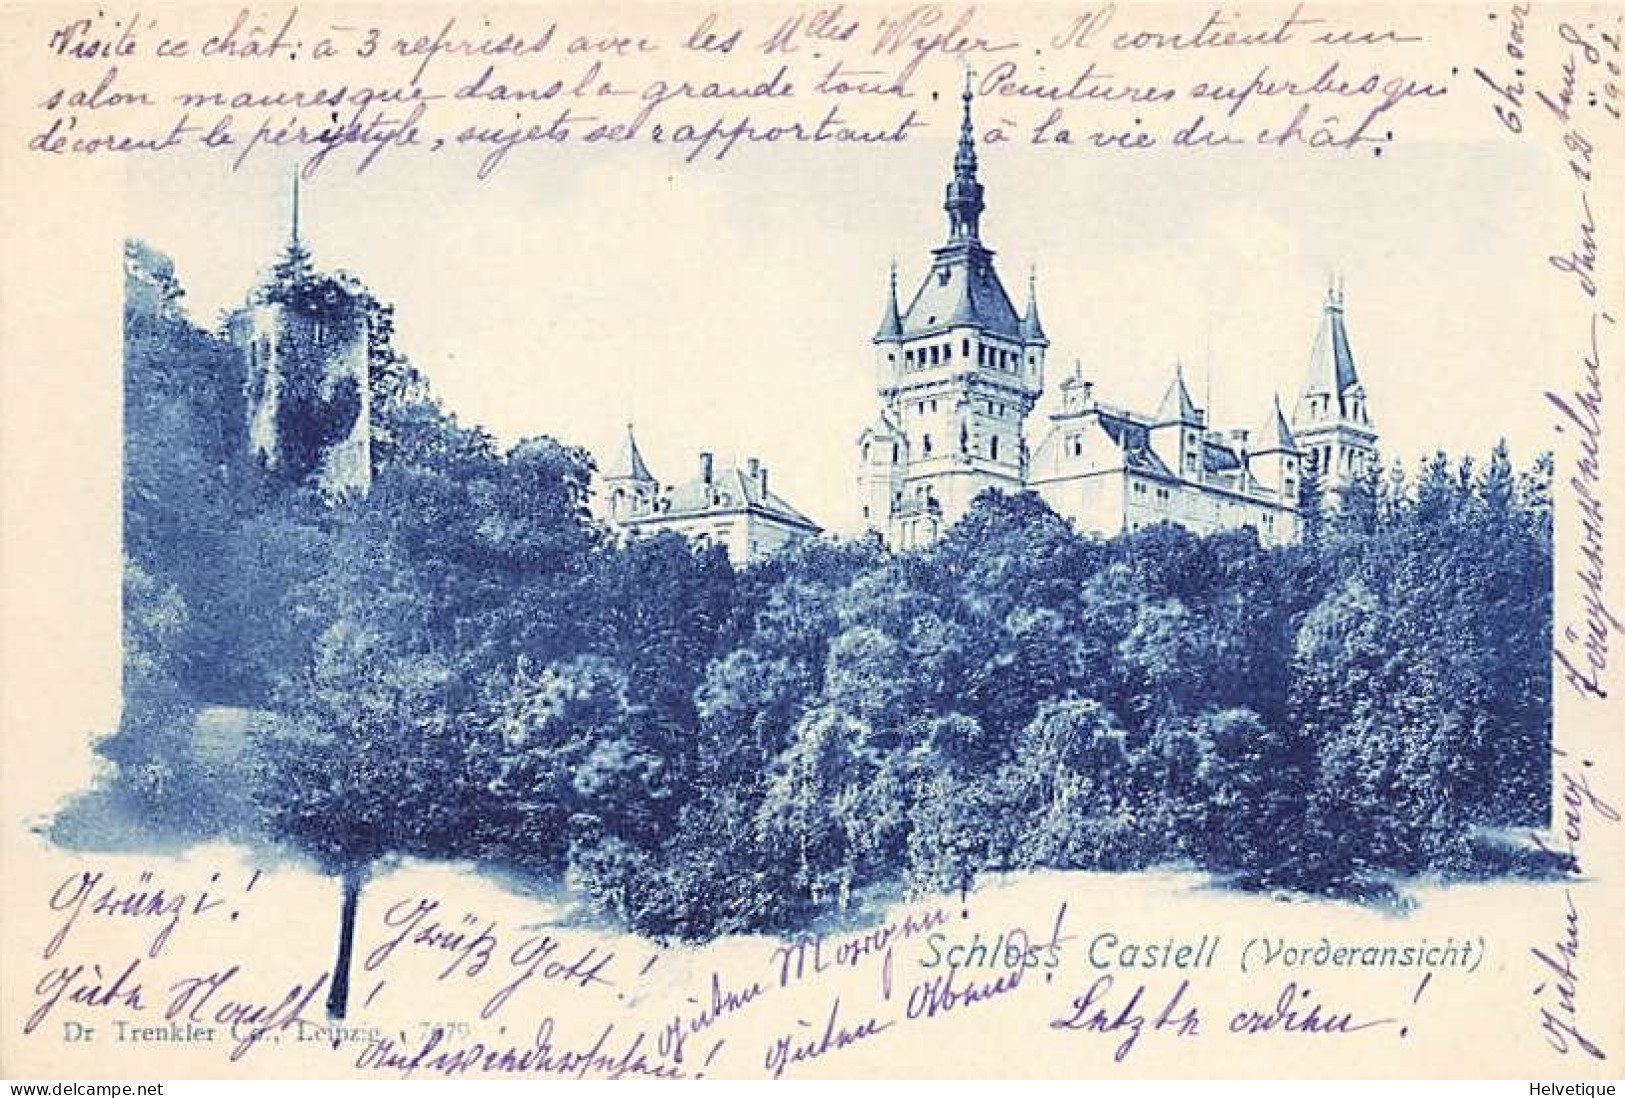 Visité ce chât: à 3 reprises avec les Mlles Wyler. Il contient un
salon mauresque dans la grande tour. Peintures superbes qui
décorent le péristyle, sujets se rapportant à la vie du chât:
Grünzi!
Grüß Gott!
Guten Morgen!
Schloss Castell (Vorderansicht)
Gute Nacht!
Guten Abend!
Letzte adieu!
Dr Trenkler Co., Leipzig. 7679
Auf wiedersehen!
Guten Tag!
den 12
1902.
Helvetique